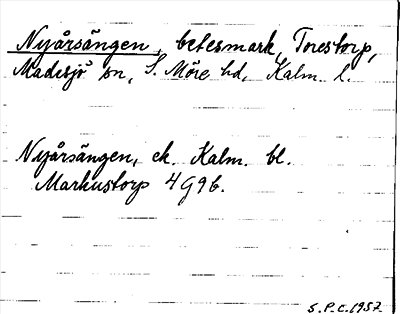 Nyårsängen, betesmark, Torestorp,
Madesjö sn, S. Möre hd, Kalm. l.
Nyårsängen, ek. Kalm. bl.
Markustorp 4G9b.
S.P.C. 1957